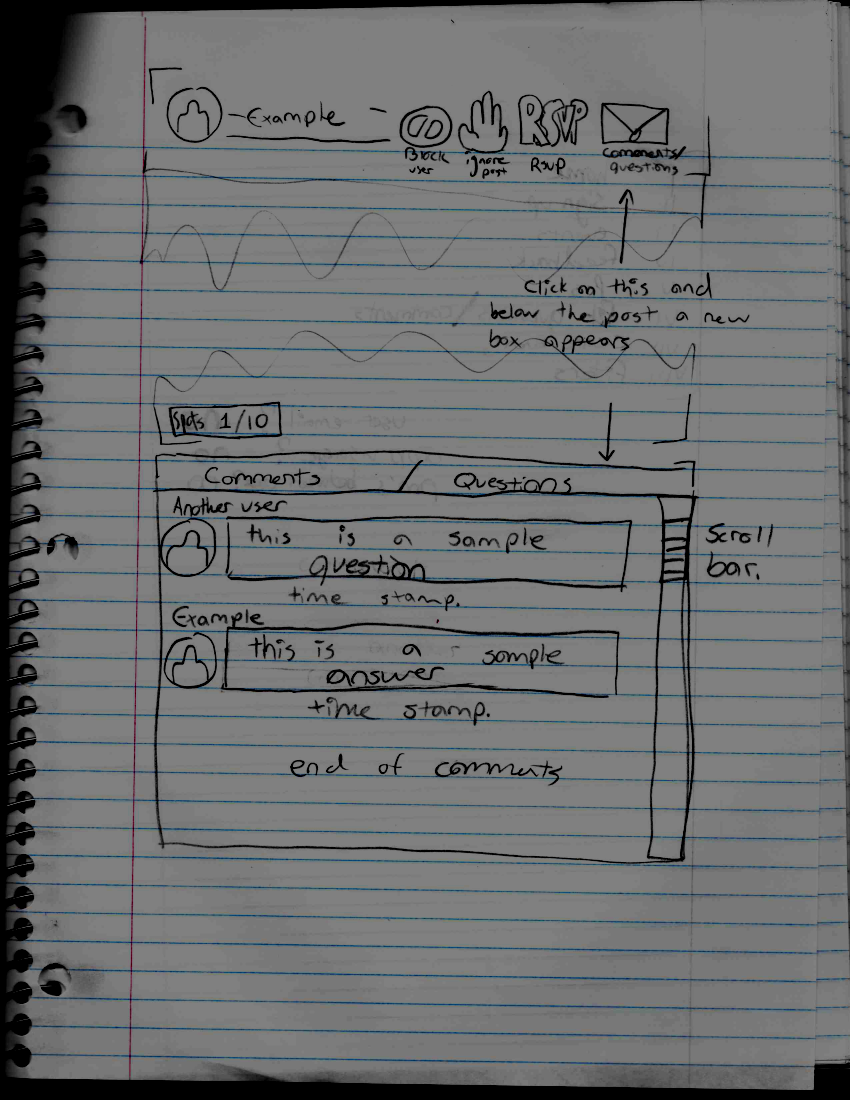 Example
RSVP
Block
user
ignore
post
Rsvp
comments/
questions
Click on this and
below the post a new
box appears
Spots 1/10
Comments / Questions
Another user
this is a sample
question
time stamp.
Scroll
bar.
Example
this is a sample
answer
time stamp.
end of comments